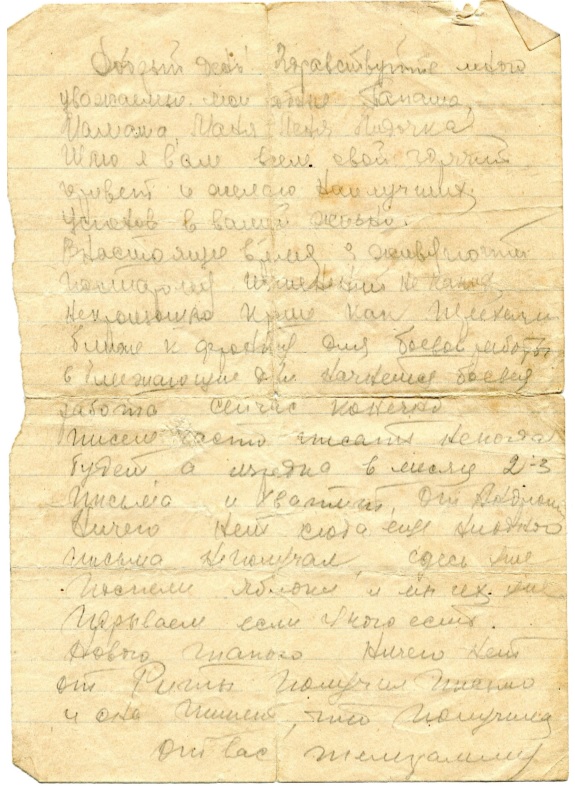 Добрый день! Здравствуйте много
уважаемый мои Папаша,
Мамаша, Маня Женя Лидочка!
Шлю я вам всем свой горячий
привет и желаю наилучших
успехов в вашей жизни.
В настоящее время я живу почти
постарому изменений не каких
непроизошло кроме как
ближе к фронту для боевой работы
в ближающие дни начнется боевая
работа сейчас конечно
писем часто писать некогда
будет а изредка в месяц 2-3
письма и хватит, От
ничего нет сюда еще ниодного
письма неполучал, здесь уже
поспели яблоки и мы их уже
нарываем если у кого есть.
Нового такого ничего нет
от Риты получил письмо
и она пишет, что получила
от вас телеграмму